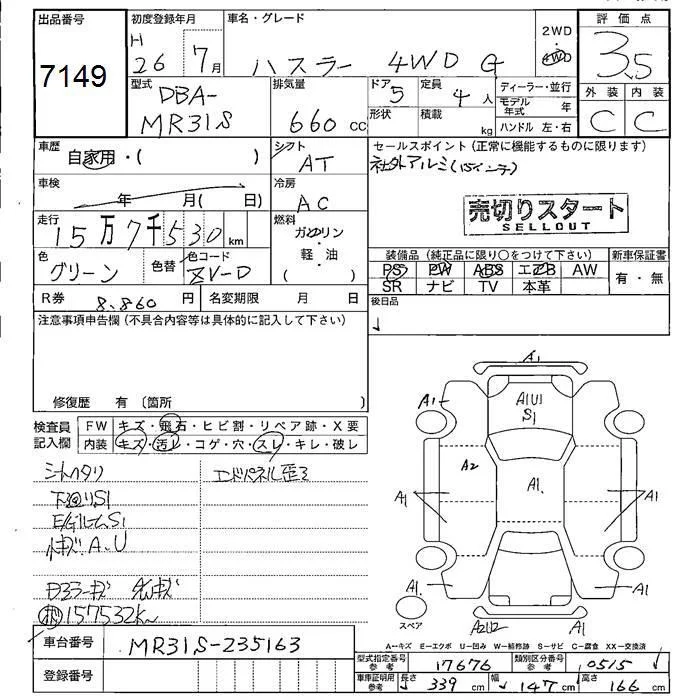 出品番号
7149
初度登録年月
H 26 7月
車名・グレード
ハスラー 4WD G
2WD
4WD
評価点
3.5
外装 内装
C C
型式
DBA-
MR31S
排気量
660 cc
ドア 5
形状
定員 4人
積載 kg
ディーラー・並行
モデル年式 年
ハンドル 左・右
車歴
自家用・( )
シフト
AT
セールスポイント(正常に機能するものに限ります)
社外アルミ(15インチ)
売切りスタート
SELLOUT
車検
年 月( 日)
冷房
AC
走行
15万7千530km
燃料
ガソリン
・
軽・油
( )
色
グリーン
色替
色コード
ZV-D
装備品(純正品に限り○をつけて下さい)
PS PW ABS エアB AW
SR ナビ TV 本革
新車保証書
有・無
R券 8,860円
名変期限 月 日
後日品
注意事項申告欄(不具合内容等は具体的に記入して下さい)
修復歴 有 〔箇所 〕
検査員
記入欄
FW キズ・飛石・ヒビ割・リペア跡・X要
内装 キズ・汚レ・コゲ・穴・スレ・キレ・破レ
シートヘタリ
エンドパネル歪ミ
下回リS1
E/GルームS1
小キズA.U
157532km
A1
A1
A1U1
S1
A2
A1
A1.
A1
A1.
A1
スペア
A2U2
A1
A…キズ E…エクボ U…凹み W…補修跡 S…サビ C…腐食 XX…交換済
車台番号
MR31S-235163
登録番号
型式指定番号
参考
17676
類別区分番号
参考
0515
車庫証明用
参考
長さ 339 cm
幅 147 cm
高さ 166 cm